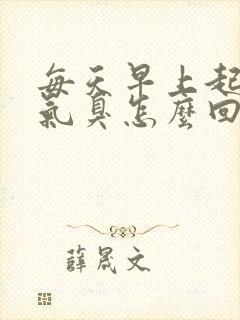 每天早上起
氣臭怎麼回
薛晟文